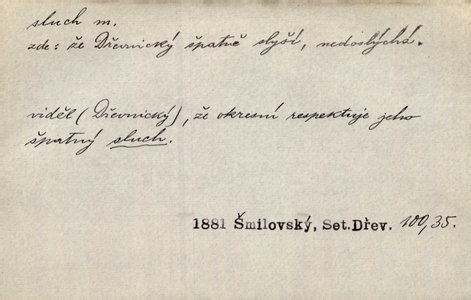 sluch m.
zde: že Dřevnický špatně slyší, nedoslýchá.
viděl (Dřevnický), že okresní respektuje jeho
špatný sluch.
1881 Šmilovský, Set.Dřev. 100,35.